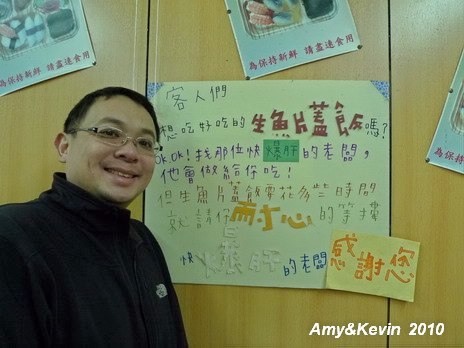 為保持新鮮 請盡速食用
為保持新鮮 請盡速食用
為保持新鮮
客人們
想吃好吃的生魚片蓋飯嗎?
OK.OK! 找那位快爆肝的老闆,
他會做給你吃!
但生魚片蓋飯要花多些時間
就請你耐心的等摟
快爆肝的老闆
感謝您
Amy&Kevin 2010